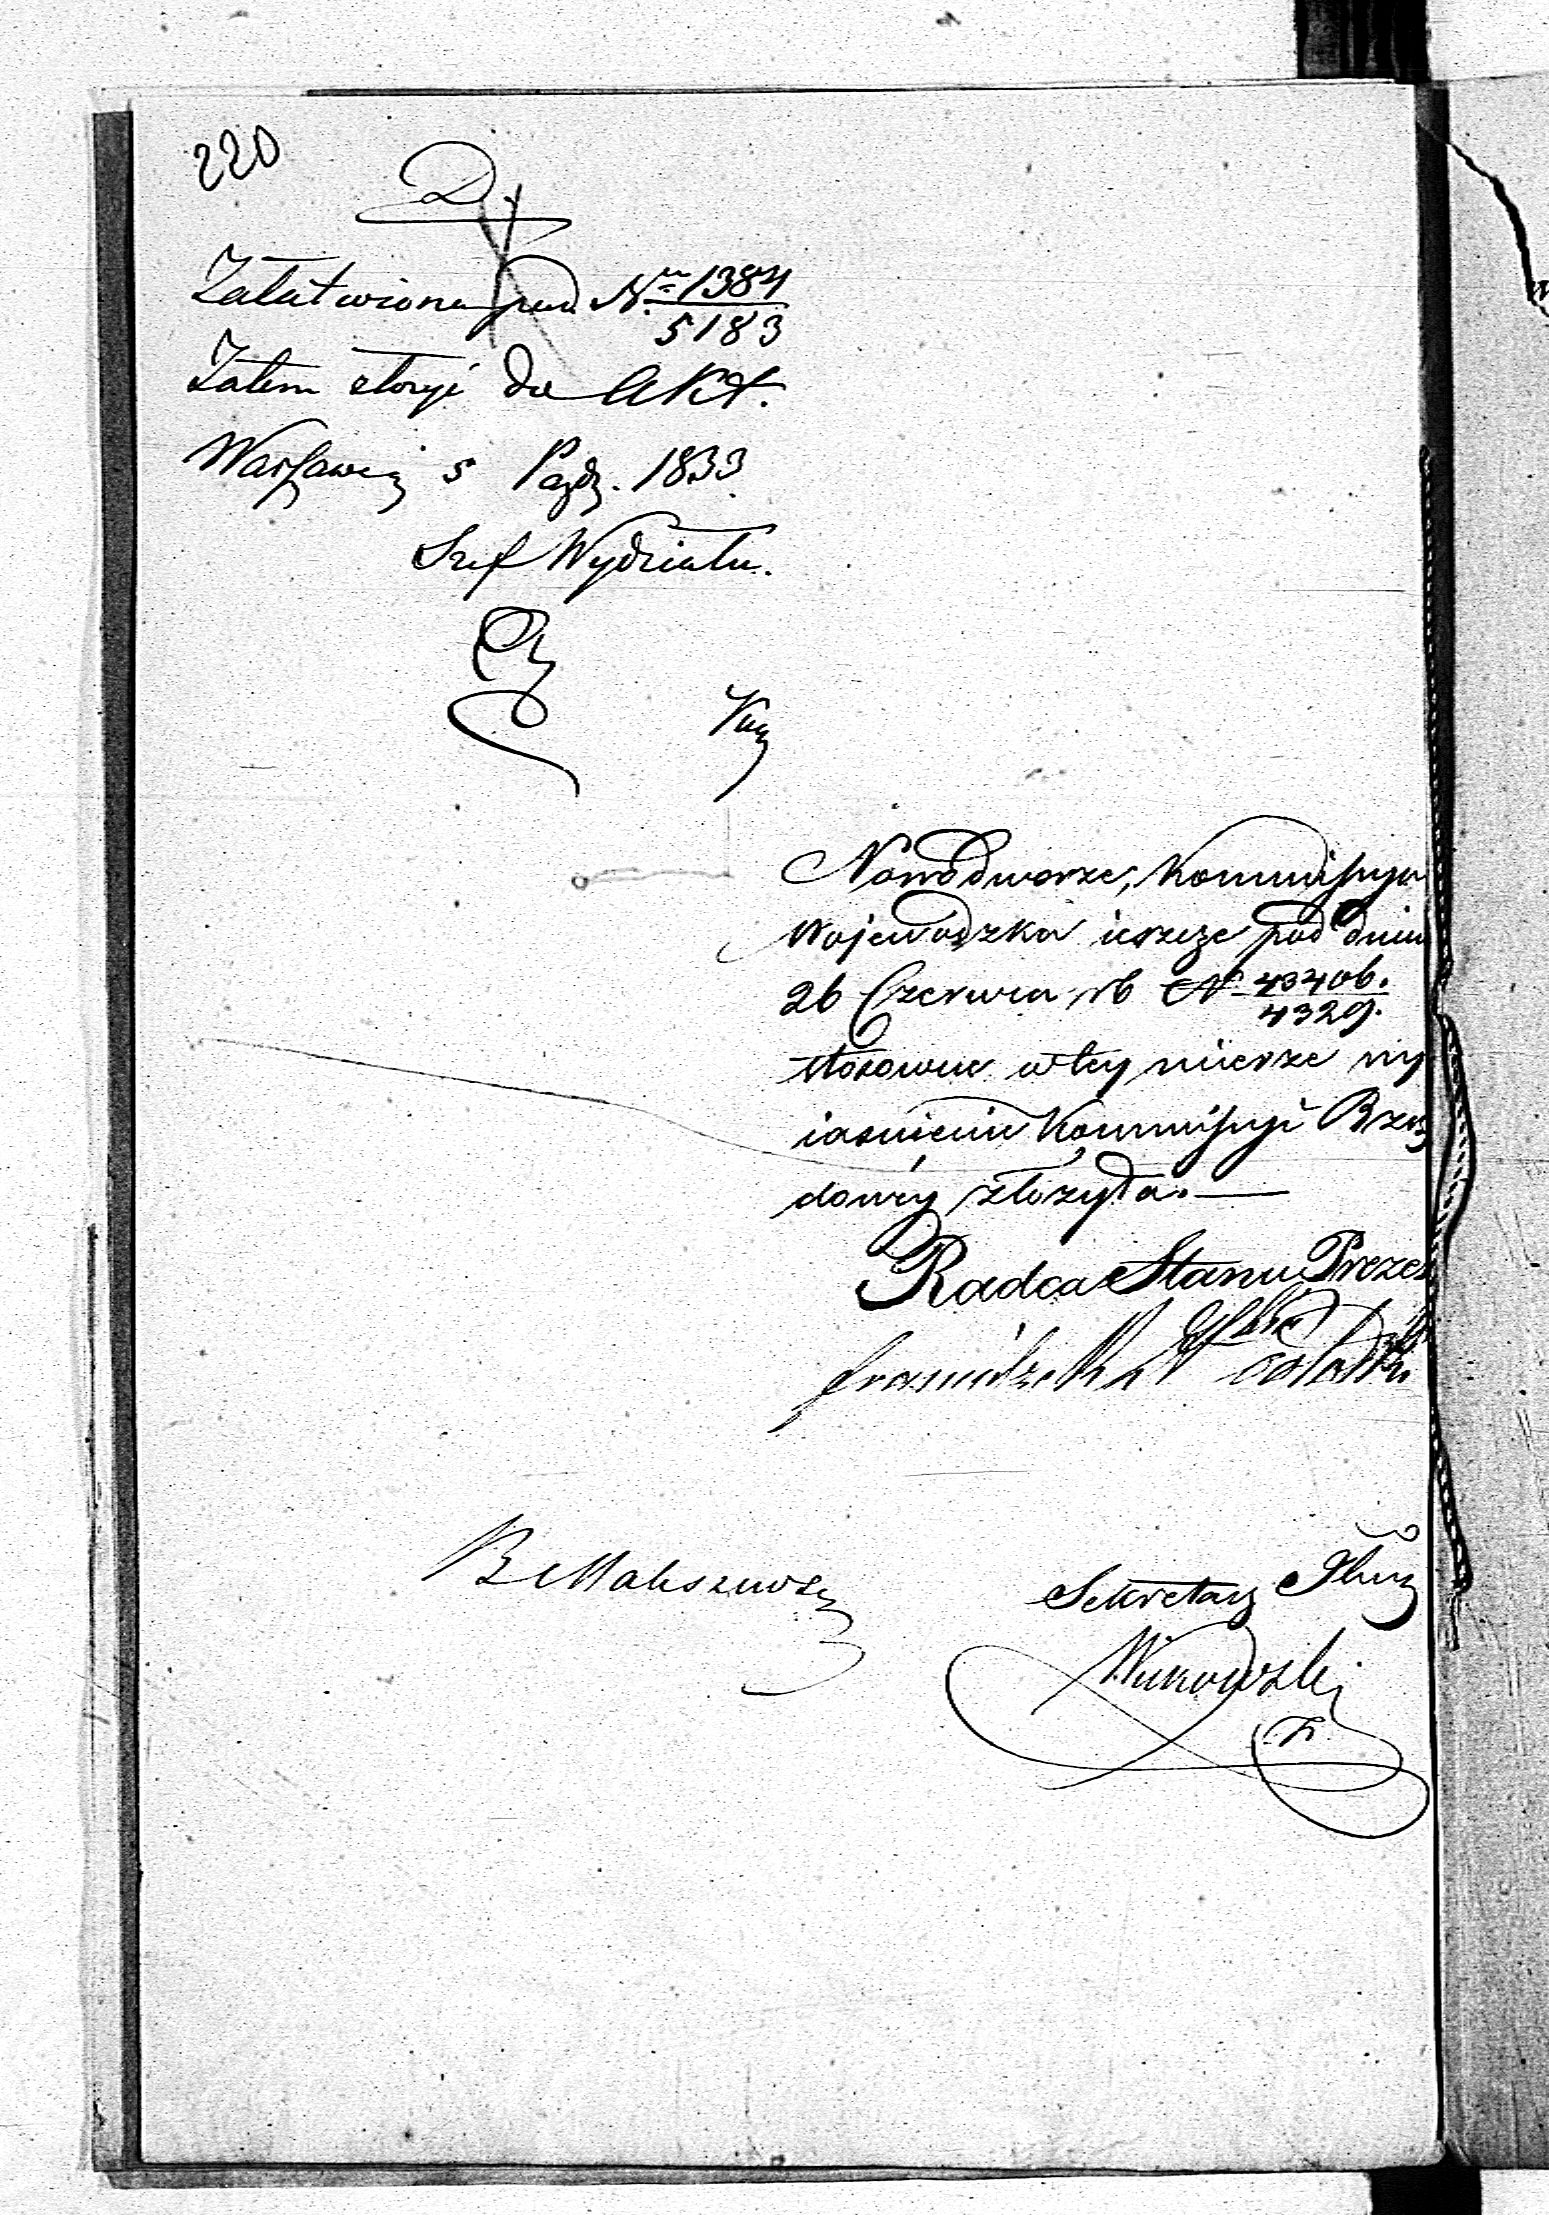 220
D.
Załatwiono pod Nrm 1384/5183
Zatem złożyć do Akt.
Warszawa 5 Paźdz. 1833
Szef Wydziału.
Nowodworze, Kommissya
Wojewódzka ieszcze pod dniem
26 Czerwca rb N 43406./4329.
stosowne w tey mierze wy
iaśnienie Kommissyi Rzą
dowéy złożyła.—
Radca Stanu Prezes
Sekretarz Jlny